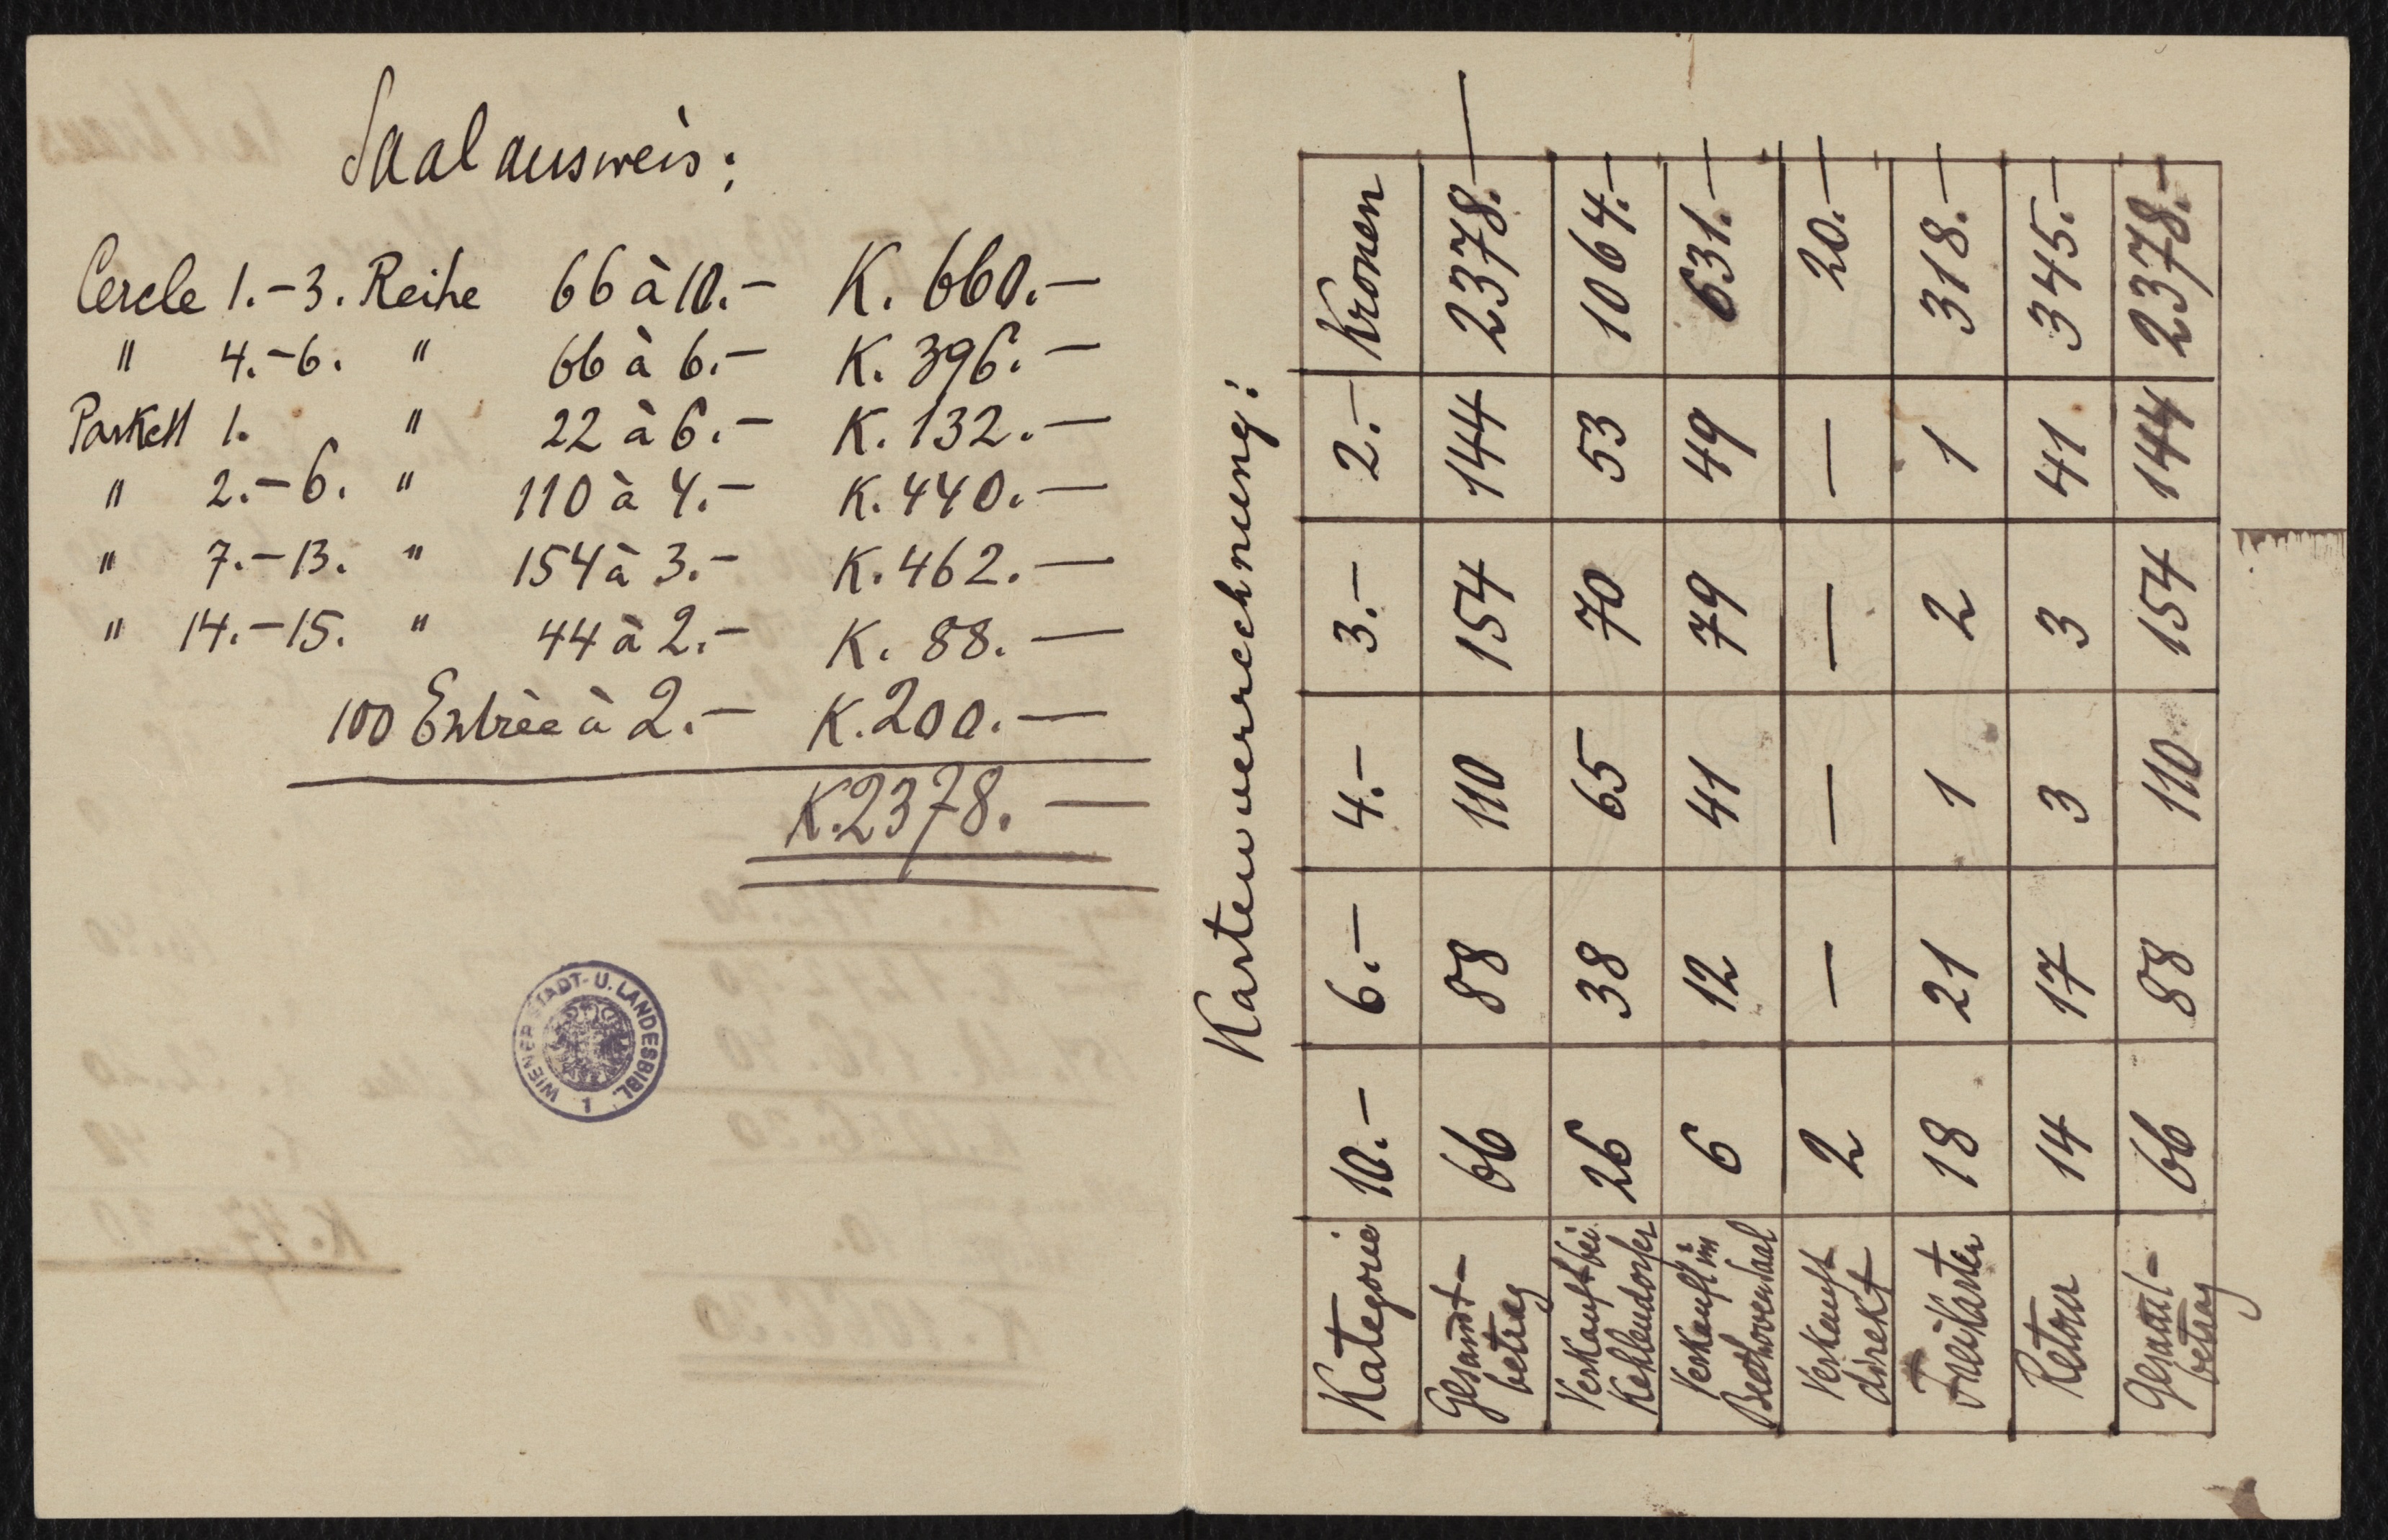 Saalausweis:
Cercle 1.–3. Reihe 66 à 10.– K. 660.—
" 4.–6. " 66 à 6.– K. 396.—
Parkett 1. " 22 à 6.– K. 132.—
" 2.–6. " 110 à 4.– K. 440.—
" 7.–13. " 154 à 3.– K. 462.—
" 14.–15. " 44 à 2.– K. 88.—
100 Entrée à 2.– K. 200.—
K. 2378.—
WIENER STADT- U. LANDESBIBL. 1
Kartenverrechnung:
Kategorie 10.– 6.– 4.– 3.– 2.– Kronen
Gesamt-
betrag 66 88 110 154 144 2378.—
Verkauft bei
Kehlendorfer 26 38 65 70 53 1064.–
Verkauft im
Beethovensaal 6 12 41 79 49 631.–
Verkauft
direkt 2 — — — — 20.—
Freikarten 18 21 1 2 1 318.—
Retour 14 17 3 3 41 345.—
Gesamt-
betrag 66 88 110 154 144 2378.–